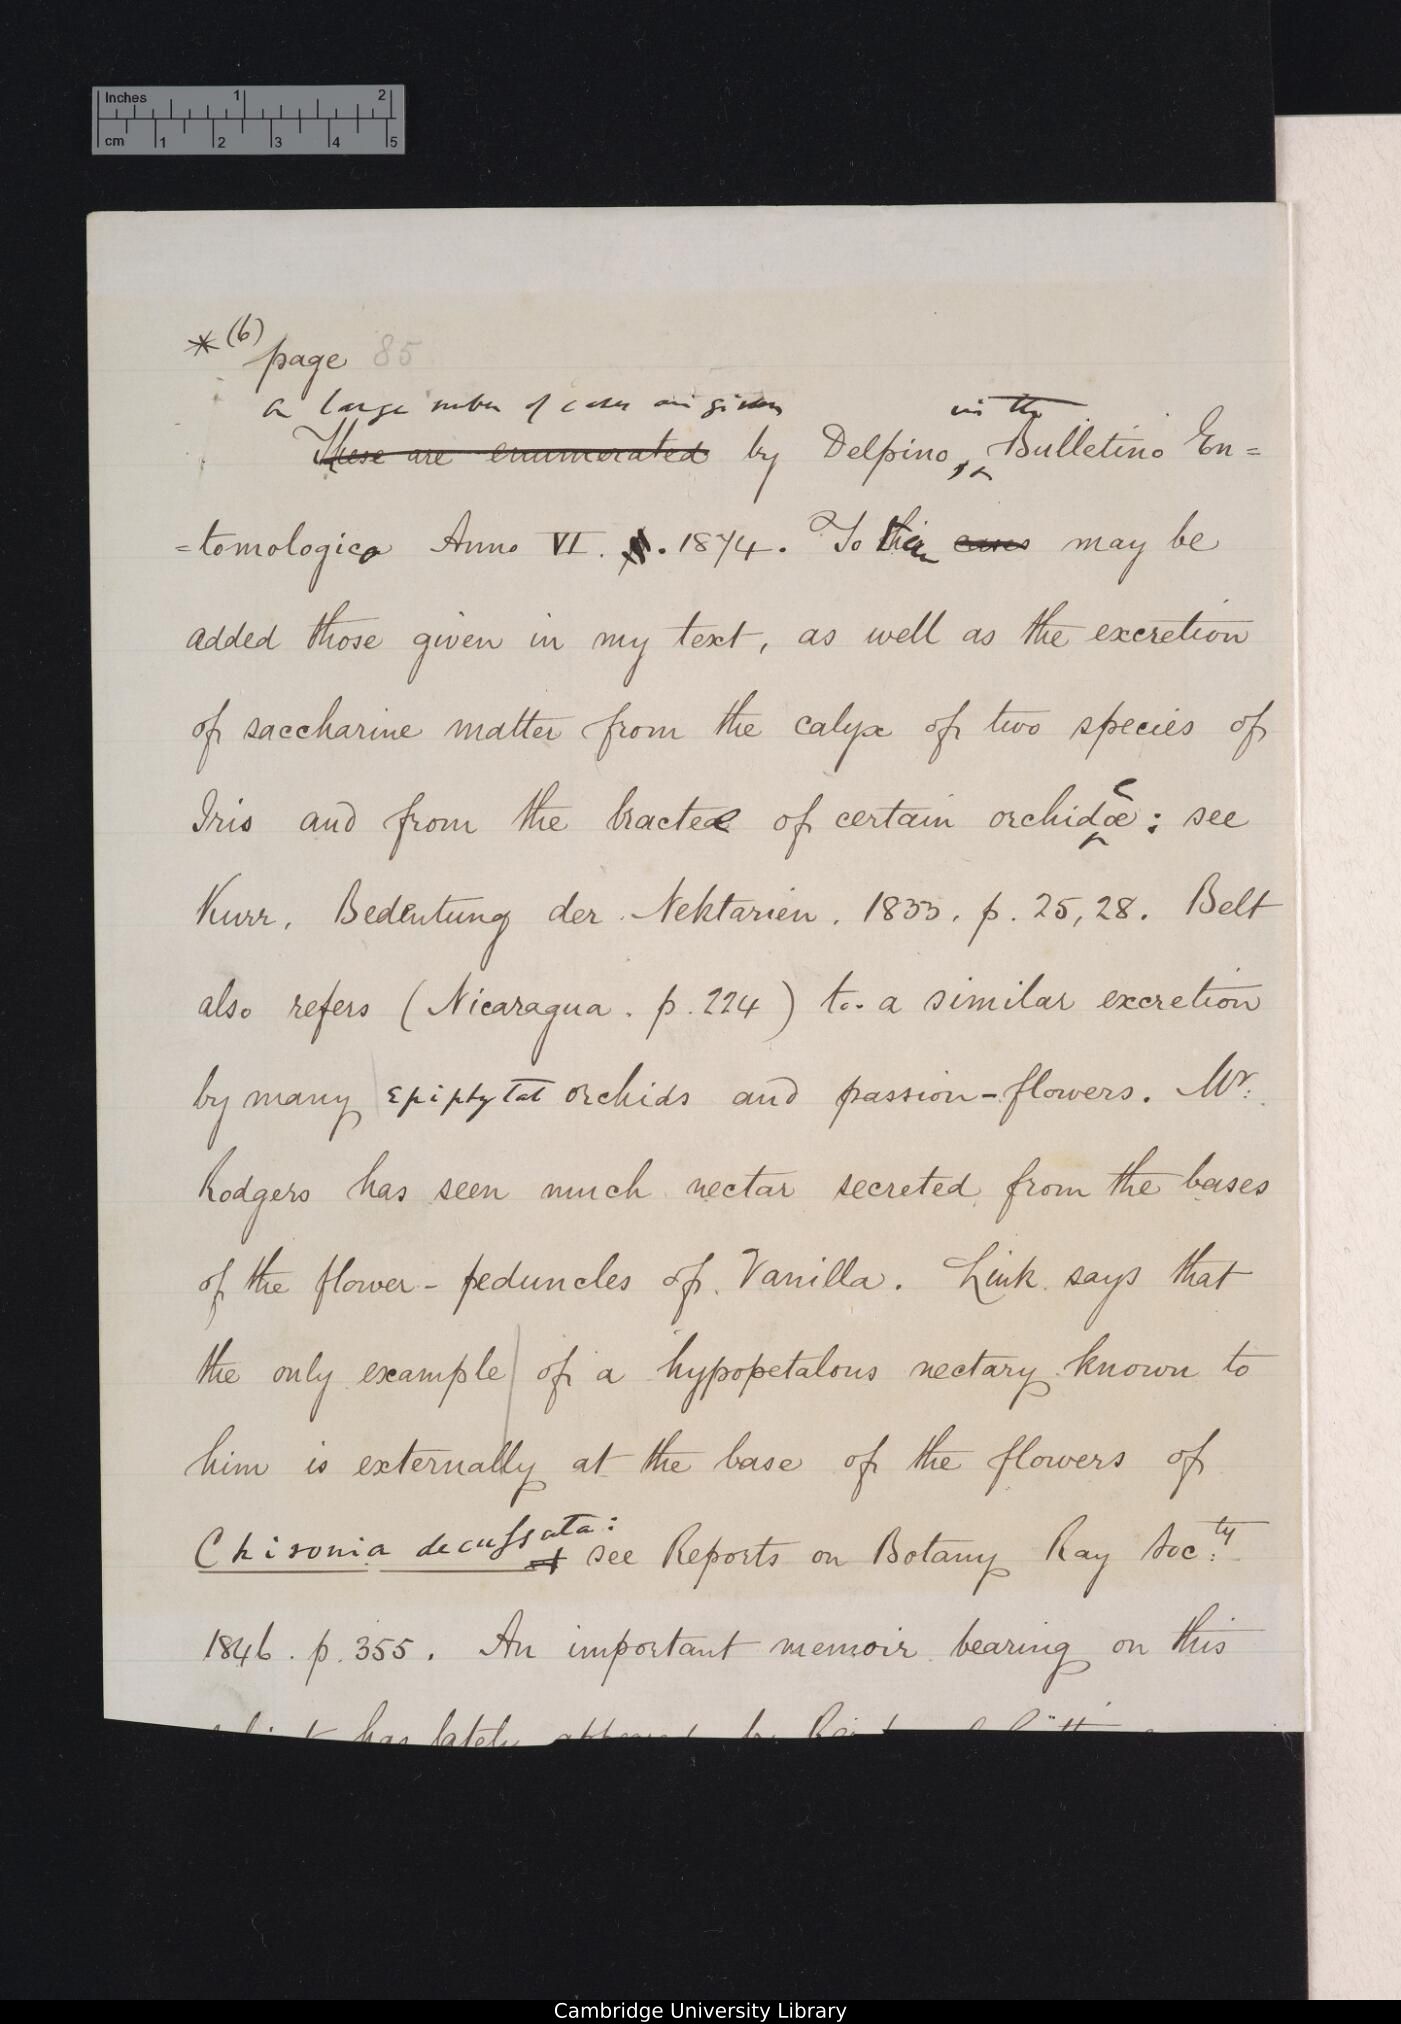 Inches 1 2
cm 1 2 3 4 5
*(b) page 85
a large number of cases are given in the
These are enumerated by Delpino, Bulletino En=
=tomologico Anno VI. 1874. To these cases may be
added those given in my text, as well as the excretion
of saccharine matter from the calyx of two species of
Iris and from the bracteæ of certain orchideæ: see
Kurr, Bedeutung der Nektarien. 1833. p. 25, 28. Belt
also refers (Nicaragua. p. 224) to a similar excretion
by many epiphytal orchids and passion-flowers. Mr.
Rodgers has seen much nectar secreted from the bases
of the flower-peduncles of Vanilla. Link says that
the only example of a hypopetalous nectary known to
him is externally at the base of the flowers of
Chironia decussata: see Reports on Botany Ray Soc.ty
1846. p. 355. An important memoir bearing on this
has lately
Cambridge University Library